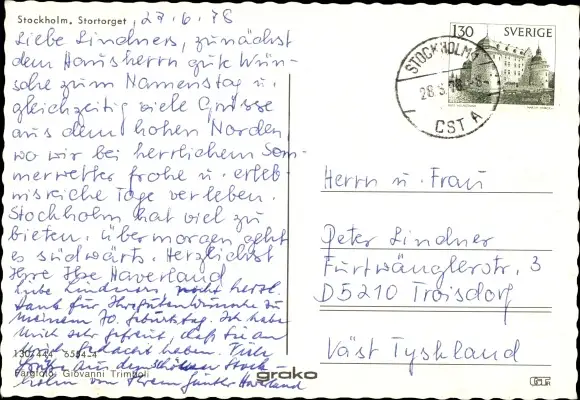 Stockholm. Stortorget , 27.6.78
Liebe Lindners, zunächst
dem Hausherrn gute Wün-
sche zum Namenstag u.
gleichzeitig viele Grüsse
aus dem hohen Norden
wo wir bei herrlichem Som-
merwetter frohe u. erleb-
nisreiche Tage verleben.
Stockholm hat viel zu
bieten. Übermorgen geht
es südwärts. Herzlichst
Ihre Ilse Haverland
Liebe Lindners, recht herzl.
Dank für Ihre guten Wünsche zu
meinem 70. Geburtstag. Ich habe
mich sehr gefreut, daß Sie an
mich gedacht haben. Viele
Grüße aus dem schönen Stock-
holm von Ihrem Günter Haverland
Färgfoto: Giovanni Trimboli
grako
130
SVERIGE
STOCKHOLM
CST A
Herrn u. Frau
Peter Lindner
Furtwänglerstr. 3
D5210 Troisdorf
Väst Tyskland